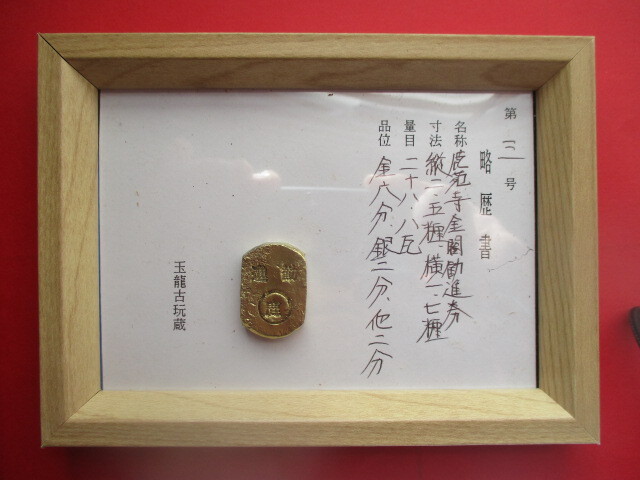 第 三 号
略歴書
名称 鹿苑寺金閣勧進券
寸法 縦二.五糎、横一.七糎
量目 二十八.八瓦
品位 金六分、銀二分、他二分
玉龍古玩蔵